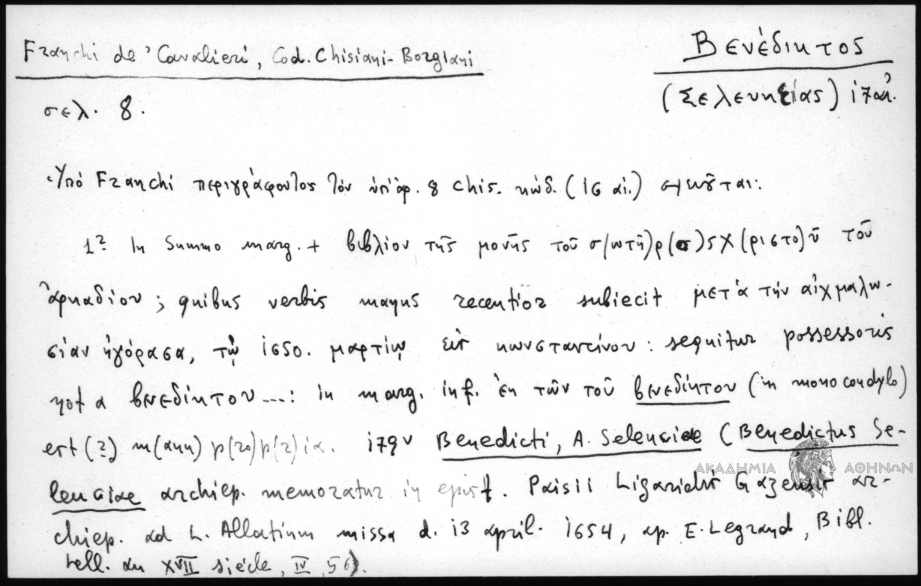 Franchi de' Cavalieri, Cod. Chisiani-Borgiani
Βενέδικτος
(Σελευκείας) ιζαι.
σελ. 8.
Ὑπὸ Franchi περιγράφοντος τὸν ὑπ' ἀρ. 8 Chis. κώδ. (16 αἰ.)
1ʳ In summo marg. + βιβλίον τῆς μονῆς τοῦ σ(ωτῆ)ρ(ο)ς χ(ριστο)ῦ τοῦ
ἀρκαδίου; quibus verbis manus recentior subiecit μετὰ τὴν αἰχμαλω-
σίαν ἠγόρασα, τῷ 1650. μαρτίῳ ἐκ κωνσταντίνου: sequitur possessoris
nota βενεδίκτου ...: in marg. inf. ἐκ τῶν τοῦ βενεδίκτου (in monocondylo)
est (?) m(anu) p(ro)p(r)ia. Benedicti, A. Seleuciae (Benedictus Se-
leuciae archiep. memoratur in epist. Paisii Ligaridis Gazensis ar-
chiep. ad L. Allatium missa d. 13 april. 1654, ap. E. Legrand, Bibl.
hell. au XVII siècle, IV, 56).
ΑΚΑΔΗΜΙΑ ΑΘΗΝΩΝ